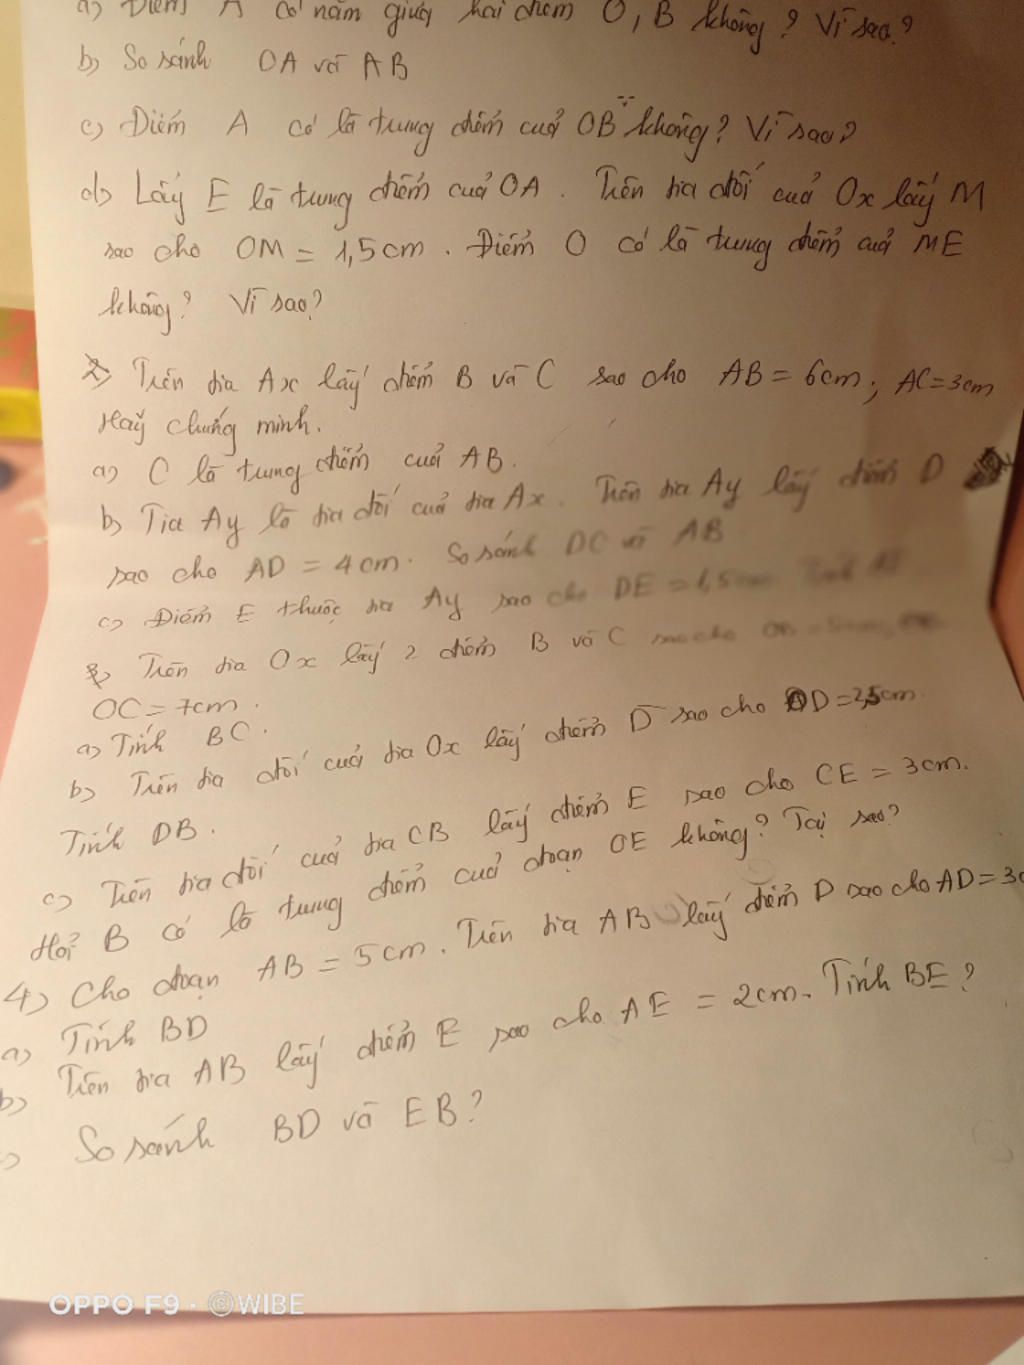 a) Điểm A có nằm giữa hai điểm O, B không? Vì sao?
b) So sánh OA và AB
c) Điểm A có là trung điểm cuả OB không? Vì sao?
d) Lấy E là trung điểm cuả OA. Trên tia đối cuả Ox lấy M
sao cho OM = 1,5cm. Điểm O có là trung điểm cuả ME
không? Vì sao?
2) Trên tia Ax lấy điểm B và C sao cho AB = 6cm; AC = 3cm
Hãy chứng minh.
a) C là trung điểm cuả AB.
b) Tia Ay là tia đối cuả tia Ax. Trên tia Ay lấy điểm D
sao cho AD = 4cm. So sánh DC và AB
c) Điểm E thuộc tia Ay sao cho DE = 1,5cm Tính
3) Trên tia Ox lấy 2 điểm B và C sao cho
OC = 7cm.
a) Tính BC.
b) Trên tia đối cuả tia Ox lấy điểm D sao cho OD = 2,5cm.
Tính DB.
c) Trên tia đối cuả tia CB lấy điểm E sao cho CE = 3cm.
Hỏi B có là trung điểm cuả đoạn OE không? Tại sao?
4) Cho đoạn AB = 5cm. Trên tia AB lấy điểm D sao cho AD = 3c
a) Tính BD
b) Trên tia AB lấy điểm E sao cho AE = 2cm. Tính BE?
c) So sánh BD và EB?
OPPO F9 · ©WIBE